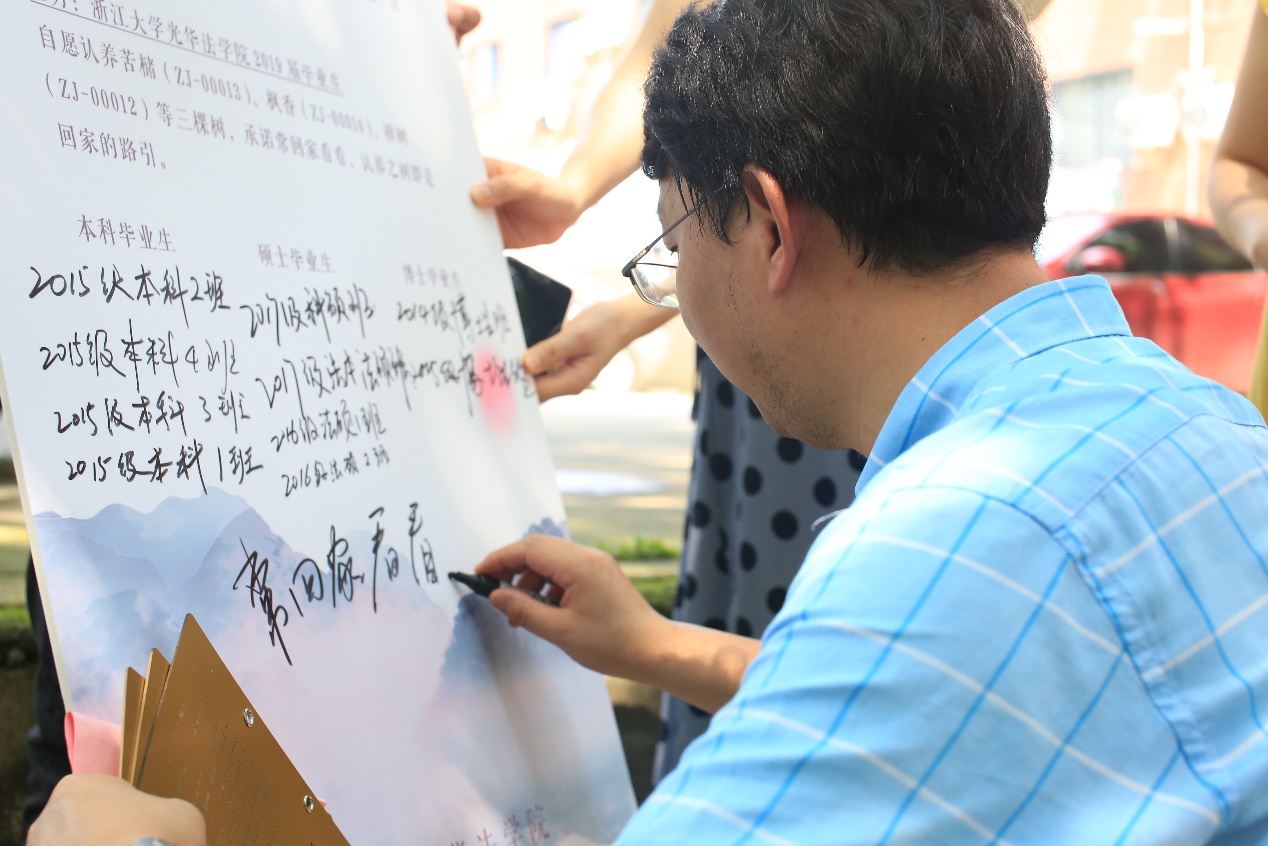 浙江大学光华法学院2019届毕业生
自愿认养苦槠(ZJ-00013)、枫香(ZJ-00014)、樟树
(ZJ-00012)等三棵树,承诺常回家看看,认养之树即是
回家的路引。
本科毕业生 硕士毕业生 博士毕业生
2015级本科2班
2015级本科4班 2017级法本法硕
2015级本科3班 2016级法硕1班
2015级本科1班 2016级法硕2班
常回家看看
学院